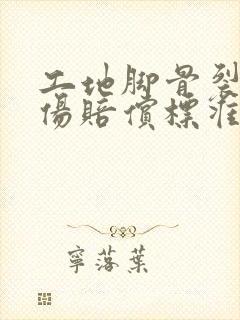 工地脚骨裂
傷賠償標准
寧落葉